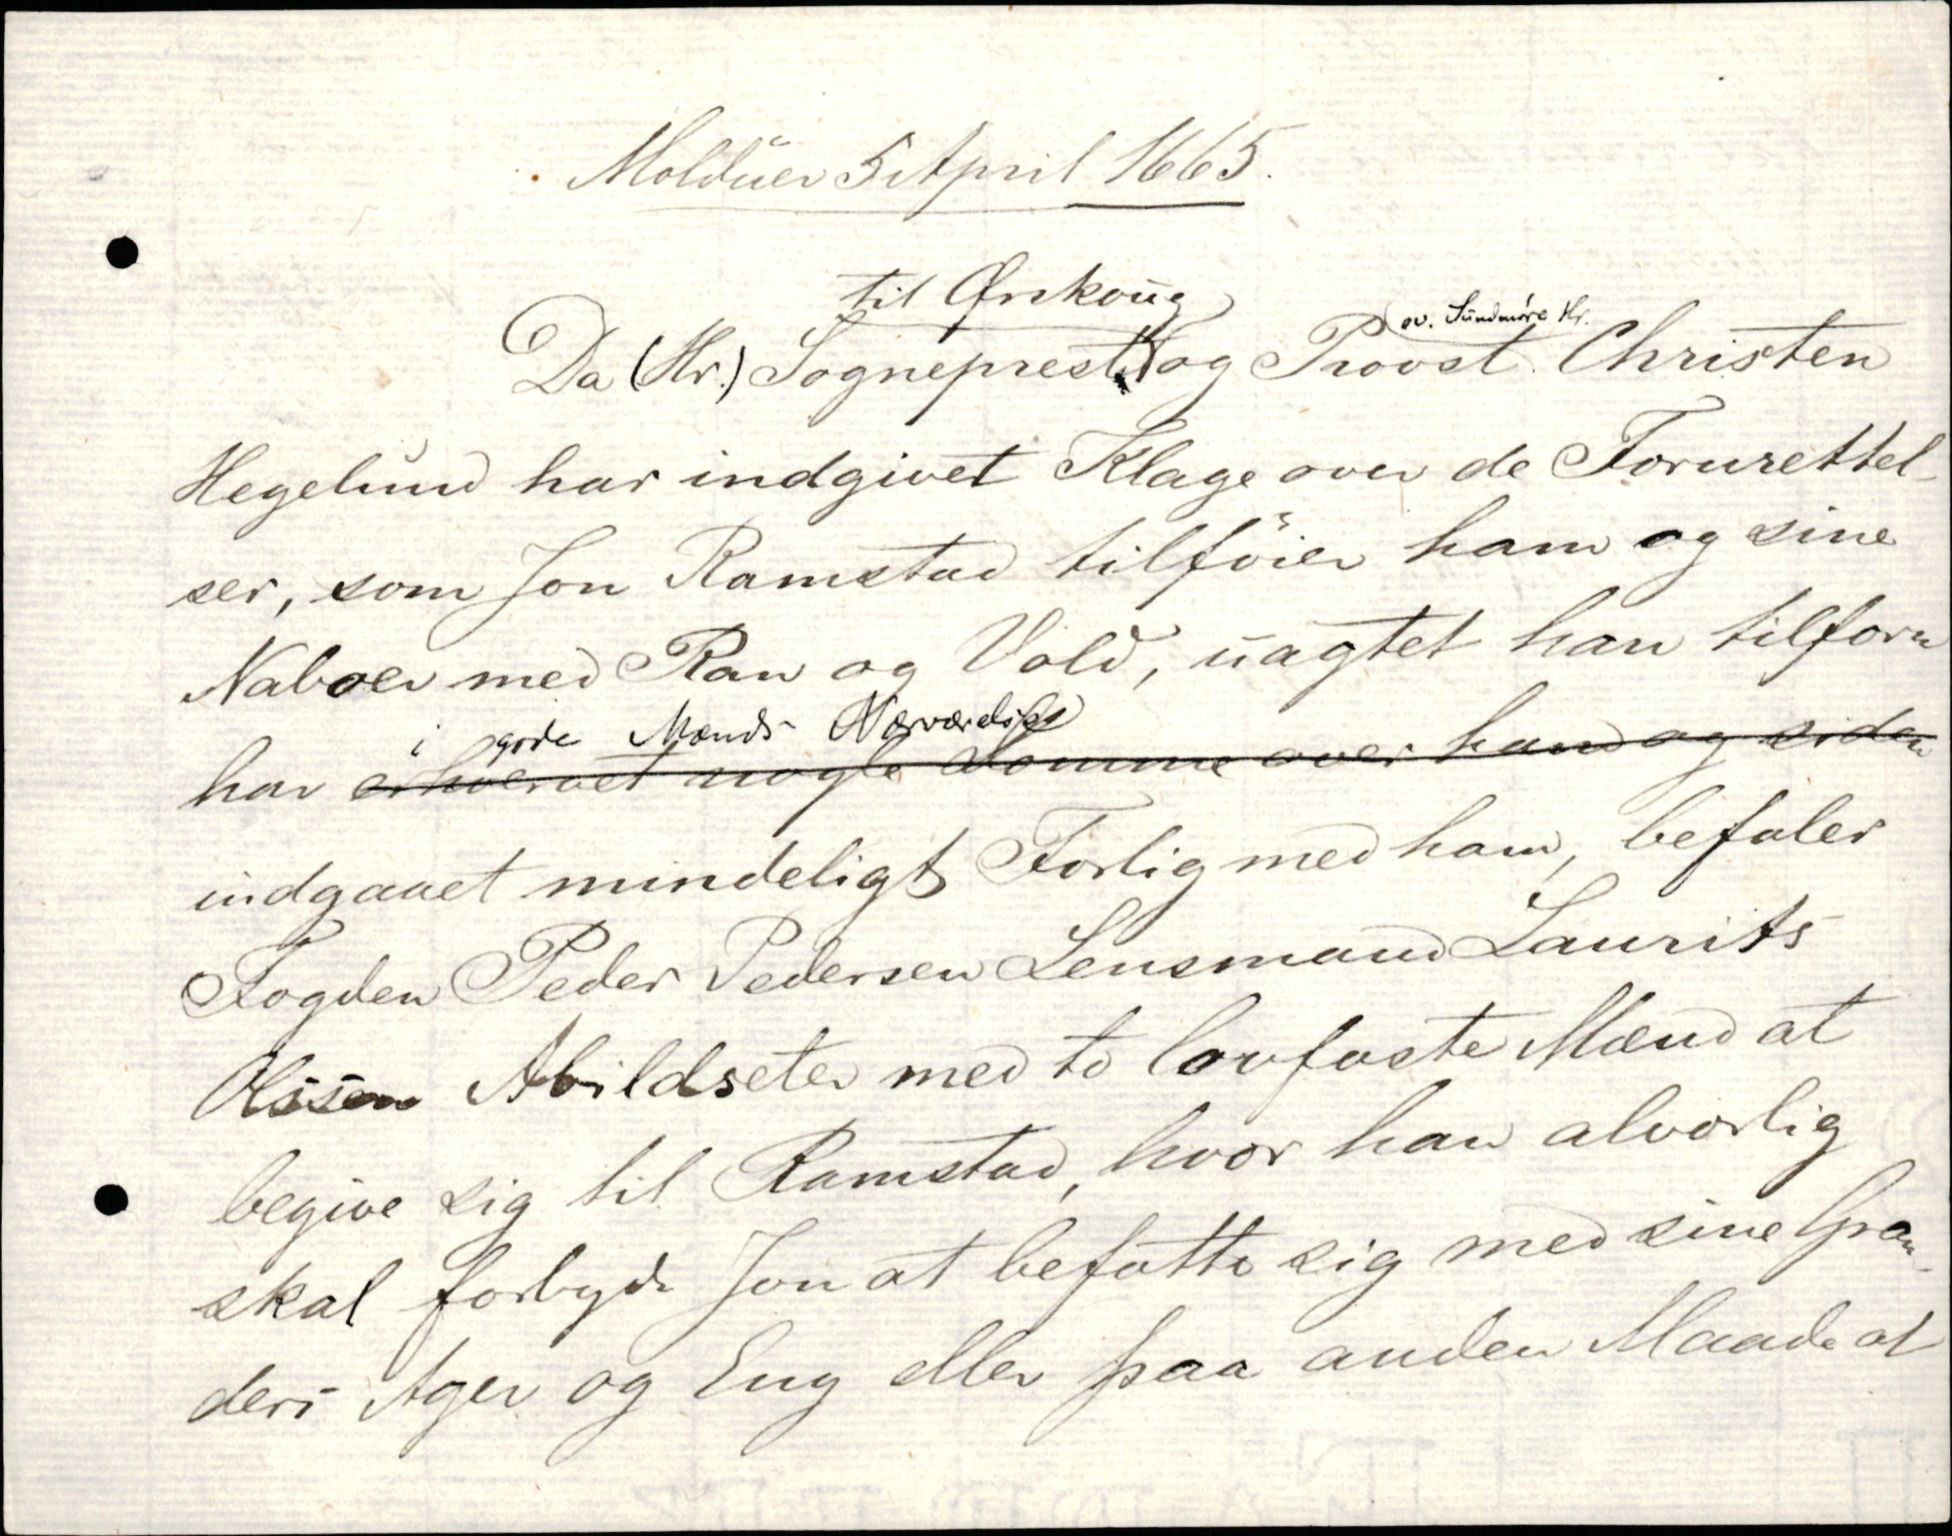 Moldüer 5 April 1665.
til Ørskoug
ov. Sündmöre Hr.
Da (Hr.) Sogneprest og Provst Christen
Hegelund har indgivet Klage over de Forurettel-
ser, som Jon Ramstad tilföier ham og sine
Naboer med Ran og Vold, uagtet han tilforn
i gode Mænds Nærværelse
har erhvervet nogle Domme over ham og siden
indgaaet mindeligt Forlig med ham, befaler
Fogden Peder Pedersen Lensmand Laurits
Olssøn Abildseter med to lovfaste Mænd at
begive sig til Ramstad, hvor han alvorlig
skal forbyde Jon at befatte sig med sine Gran-
ders Ager og Eng eller paa anden Maade at